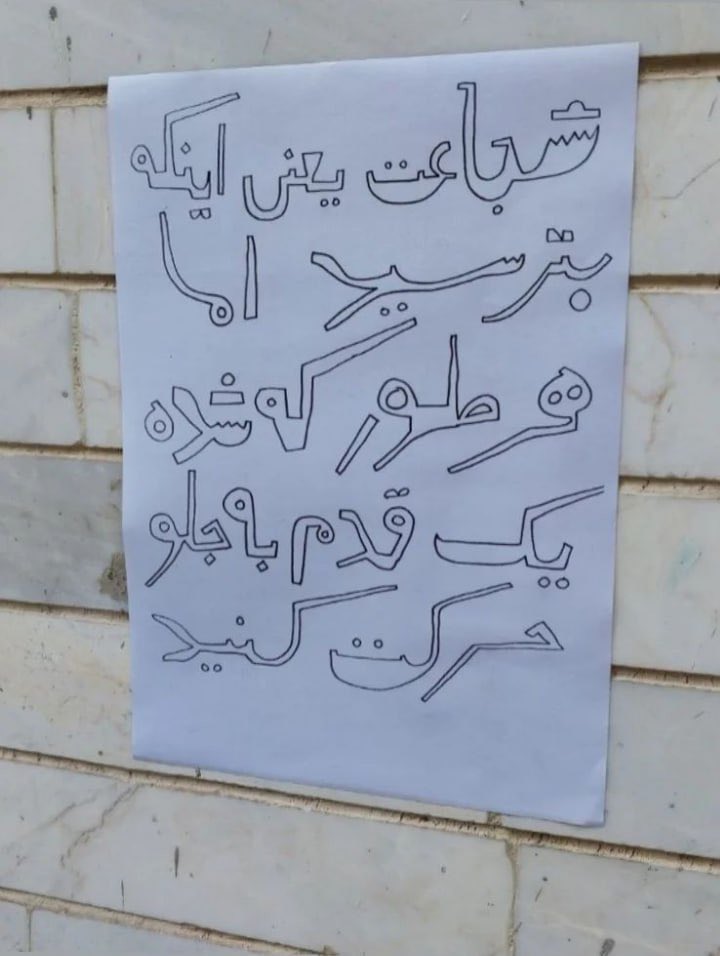 شجاعت یعنی اینکه
بترسید اما
هر طور که شده
یک قدم به جلو
حرکت کنید